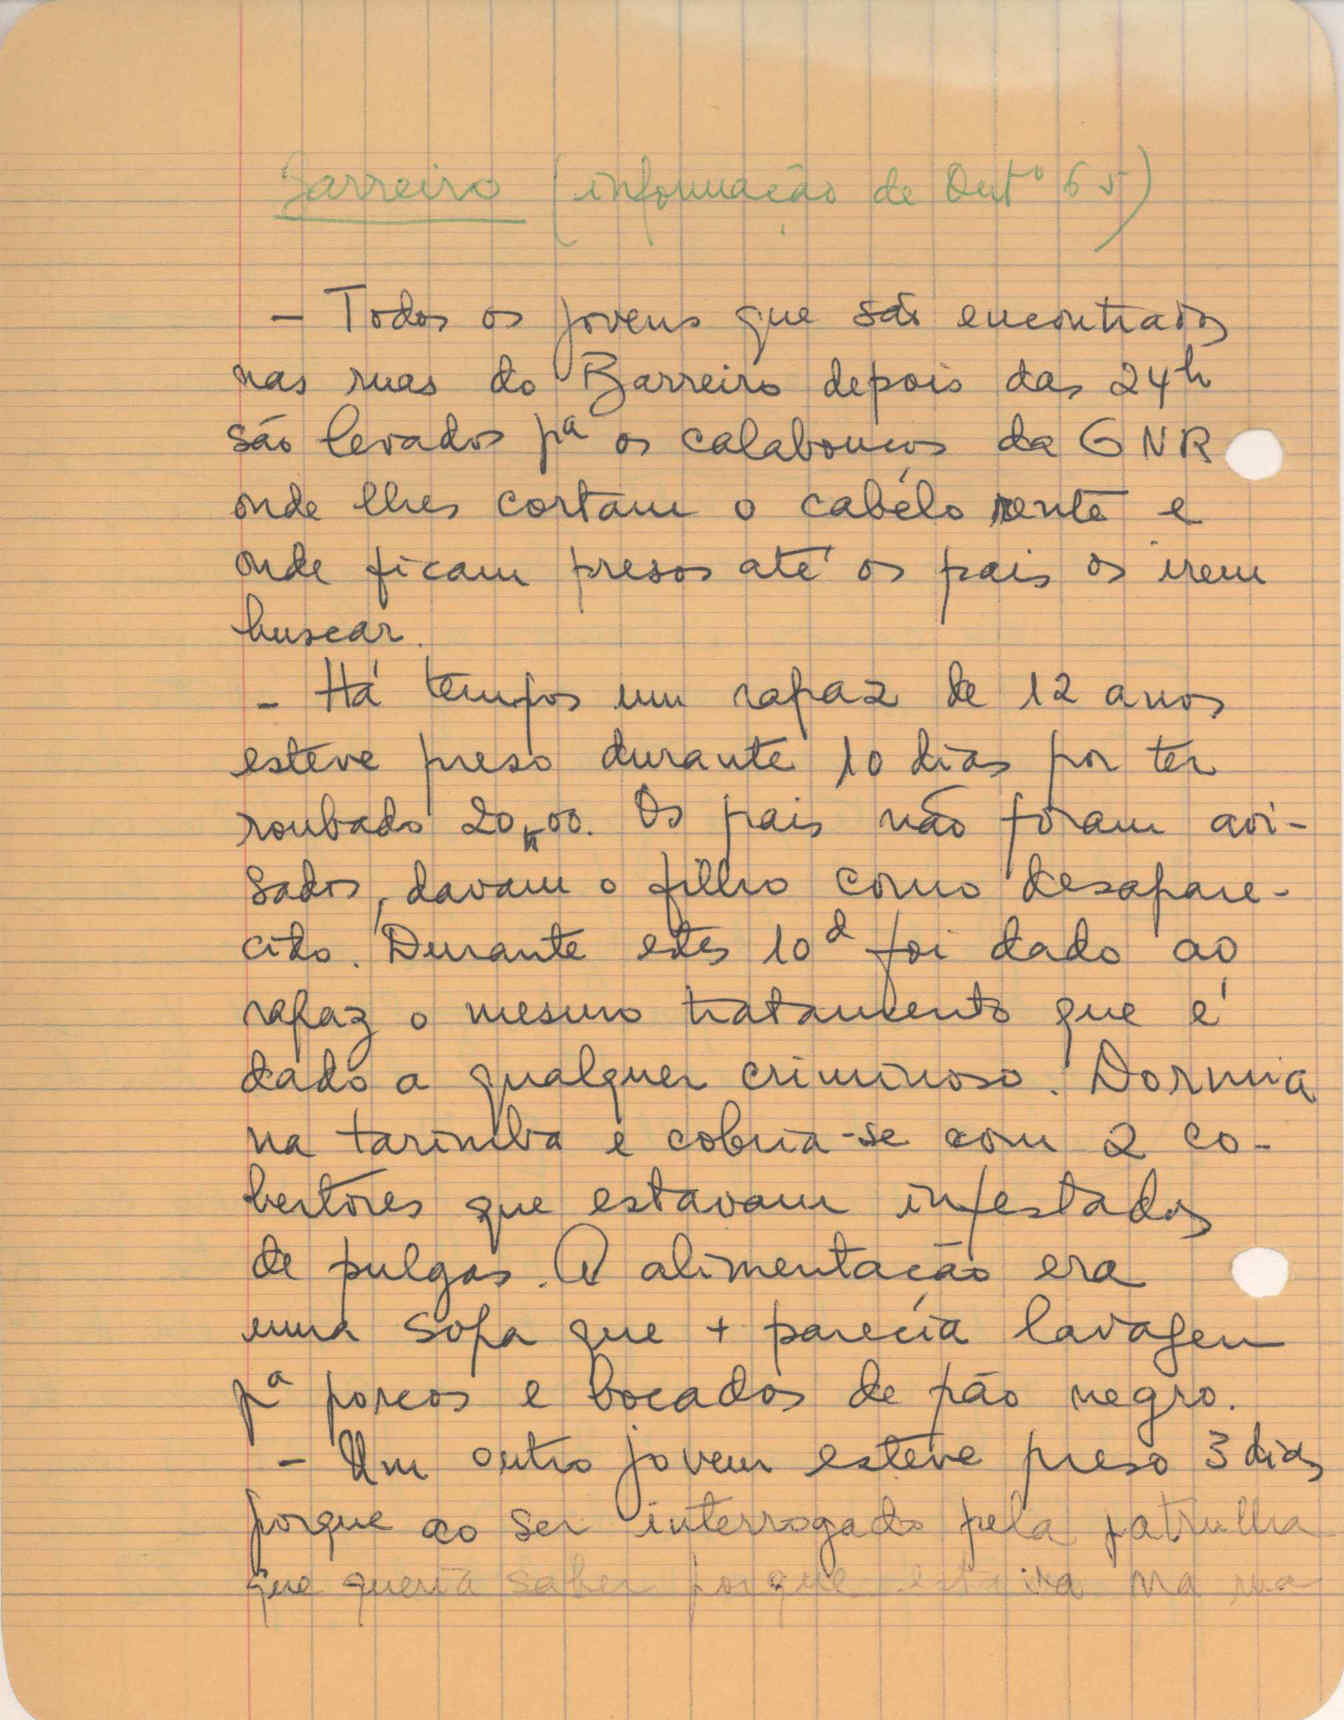 Barreiro (informação de Outº 65)
- Todos os jovens que são encontrados
nas ruas do Barreiro depois das 24h
são levados pª os calabouços da GNR
onde lhes cortam o cabêlo rente e
onde ficam presos até os pais os irem
buscar.
- Há tempos um rapaz de 12 anos
esteve preso durante 10 dias por ter
roubado 20$00. Os pais não foram avi-
sados, davam o filho como desapare-
cido. Durante estes 10d foi dado ao
rapaz o mesmo tratamento que é
dado a qualquer criminoso. Dormia
na tarimba e cobria-se com 2 co-
bertores que estavam infestados
de pulgas. A alimentação era
uma sopa que + parecia lavagem
pª porcos e bocados de pão negro.
- Um outro jovem esteve preso 3 dias
porque ao ser interrogado pela patrulha
que queria saber porque estava na rua